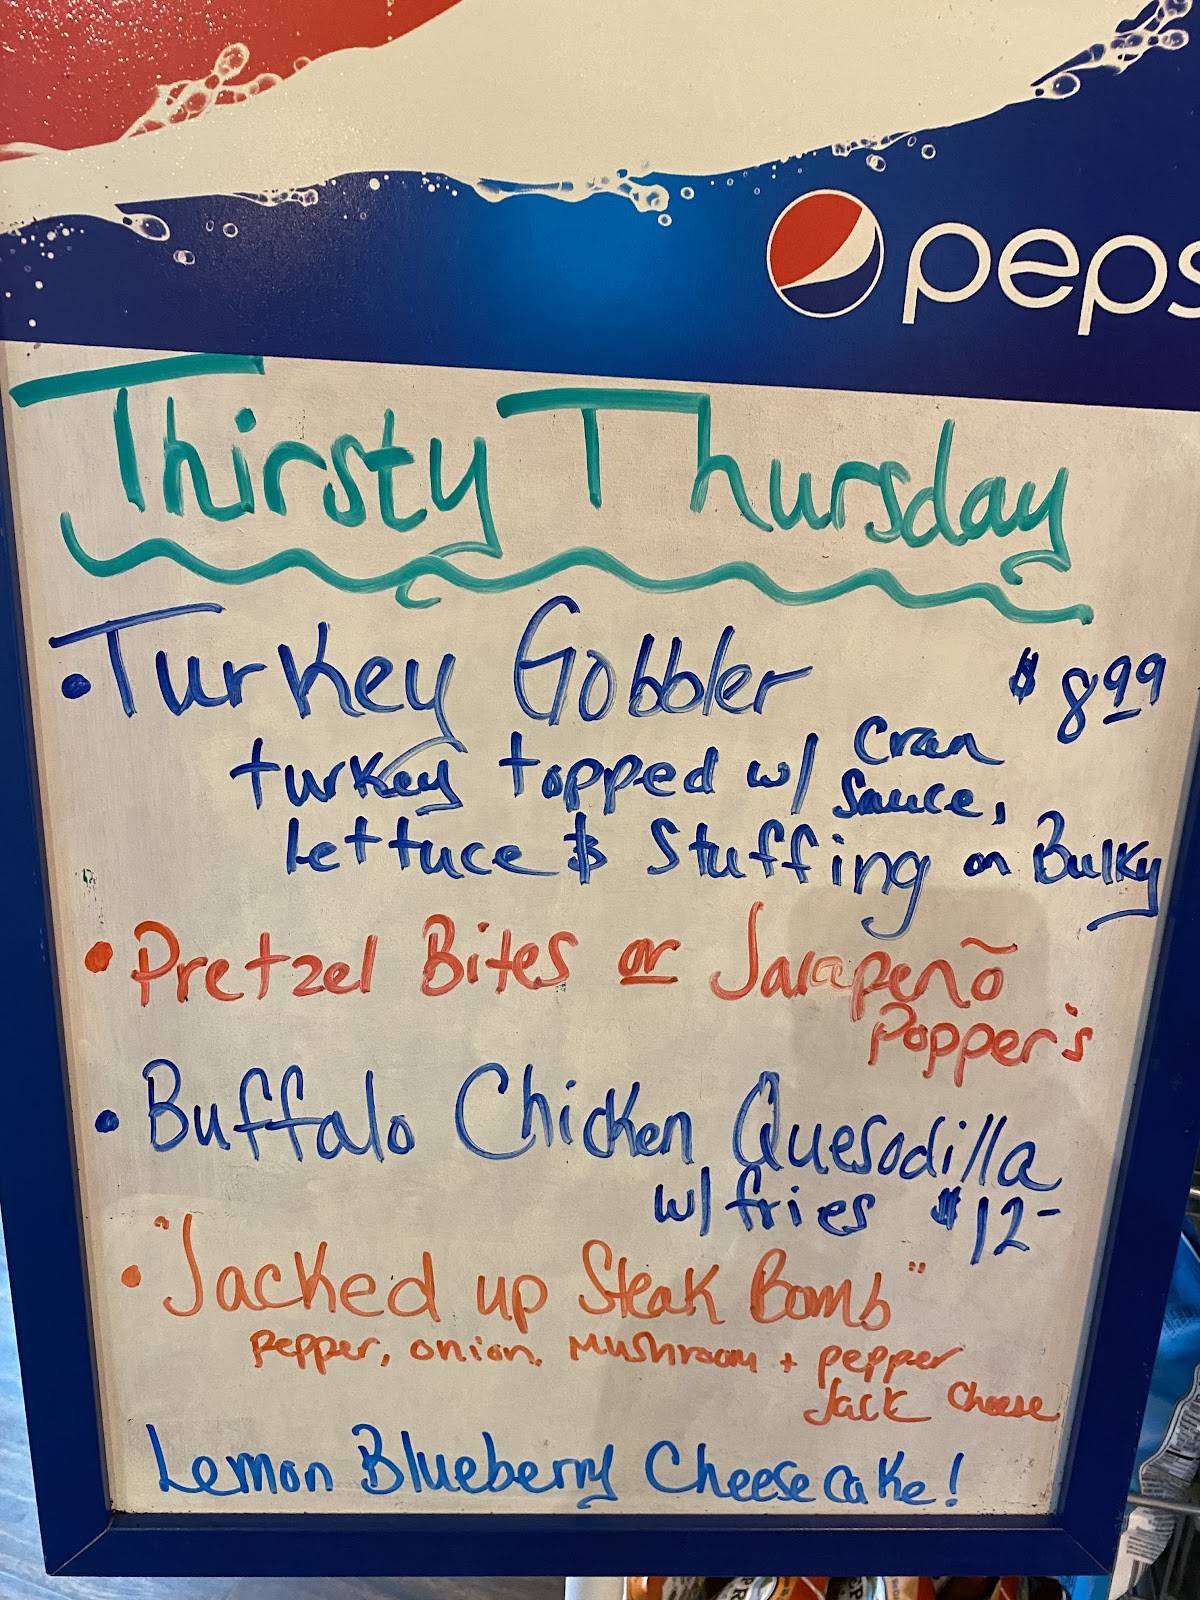 peps
Thirsty Thursday
• Turkey Gobbler $8.99
turkey topped w/ Cran Sauce,
Lettuce & Stuffing on Bulky
• Pretzel Bites or Jalapeñõ
Popper's
• Buffalo Chicken Quesodilla
w/ fries $12-
• "Jacked up Steak Bomb"
Pepper, onion, Mushroom + pepper
Jack Cheese
Lemon Blueberry Cheesecake!